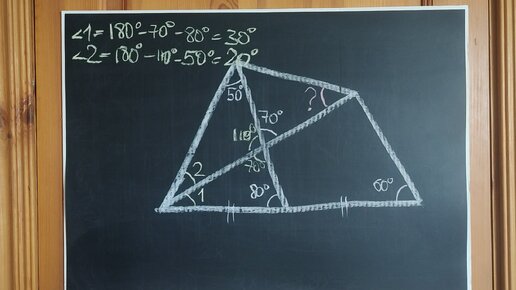 ∠1 = 180°-70°-80° = 30°
∠2 = 180°-110°-50° = 20°
50°
?
70°
110°
2
70°
1
80°
60°